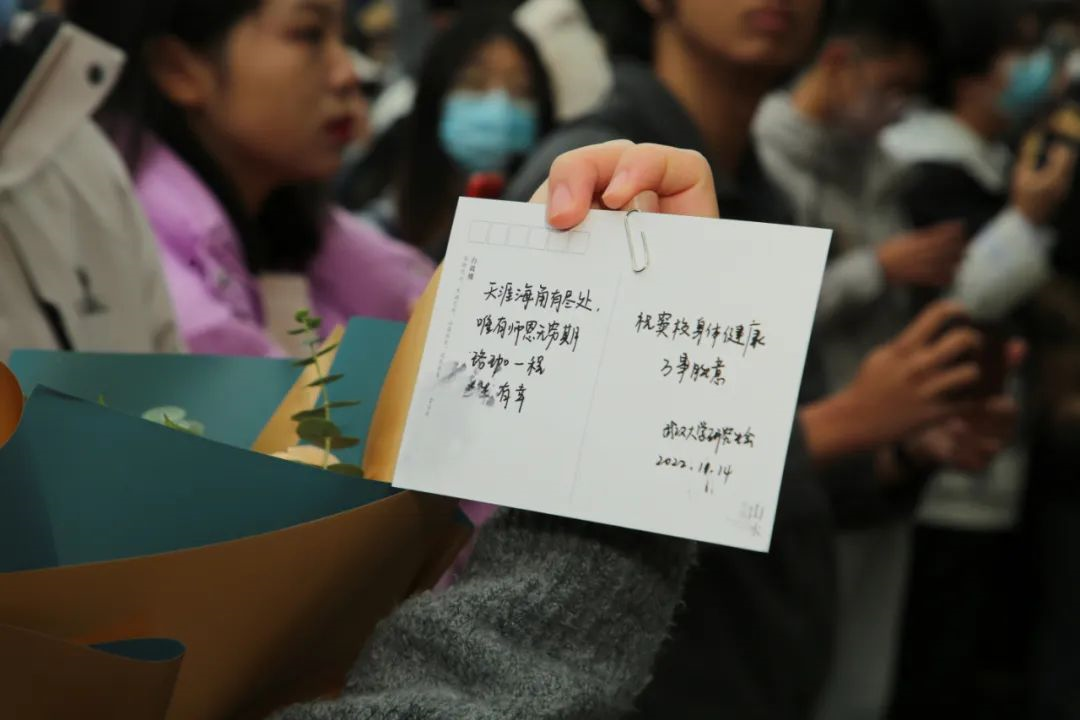 天涯海角有尽处,
唯有师恩无穷期
珞珈一程
有幸
祝窦校身体健康
万事胜意
武汉大学研究生会
2022. 11. 14
山水